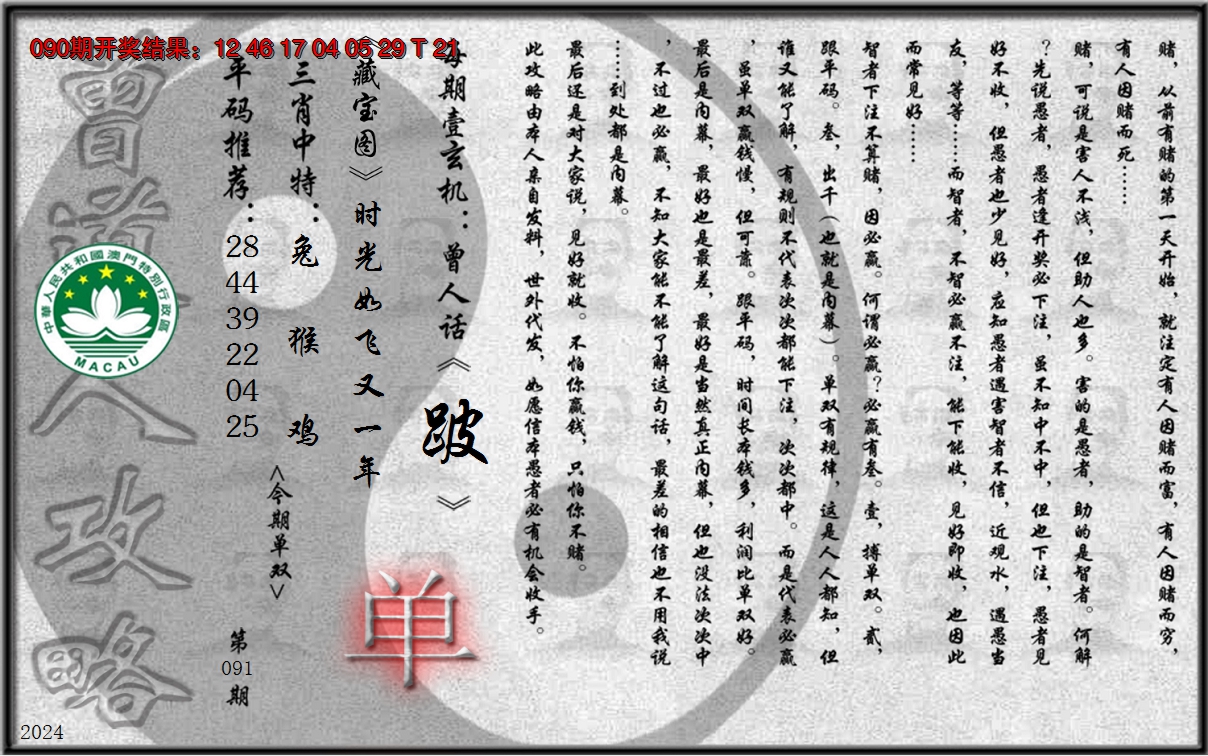 090期开奖结果：12 46 17 04 05 29 T 21
赌，从前有赌的第一天开始，就注定有人因赌而富，有人因赌而穷，
有人因赌而死……
赌，可说是害人不浅，但助人也多。害的是愚者，助的是智者。何解
？先说愚者，愚者逢开奖必下注，虽不知中不中，但也下注，愚者见
好不收，但愚者也少见好，应知愚者遇害智者不信，近观水，遇愚当
友，等等……而智者，不智必赢不注，能下能收，见好即收，也因此
而常见好……
智者下注不算赌，因必赢。何谓必赢？必赢有叁。壹，搏单双。贰，
跟平码。叁，出千（也就是内幕）。单双有规律，这是人人都知，但
谁又能了解，有规则不代表次次都能下注，次次都中。而是代表必赢
，虽单双赢钱慢，但可靠。跟平码，时间长本钱多，利润比单双好。
最后是内幕，最好也是最差，最好是当然真正内幕，但也没法次次中
，不过也必赢，不知大家能不能了解这句话，最差的相信也不用我说
……到处都是内幕。
最后还是对大家说，见好就收。不怕你赢钱，只怕你不赌。
此攻略由本人亲自发料，世外代发，如愿信本愚者必有机会收手。
每期壹玄机：曾人话《跛》
《藏宝图》时光如飞又一年
单
三肖中特：兔 猴 鸡
<今期单双>
平码推荐：
28
44
39
22
04
25
第
091
期
曾道人攻略
中華人民共和國澳門特別行政區
MACAU
2024